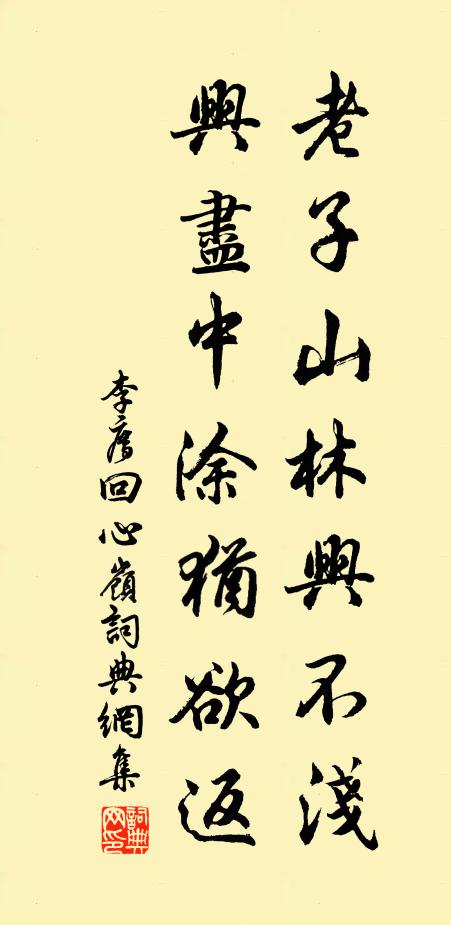 老子山林興不淺
興盡中涂猶欲返
李廌回心嶺詞典網集
詞典网印